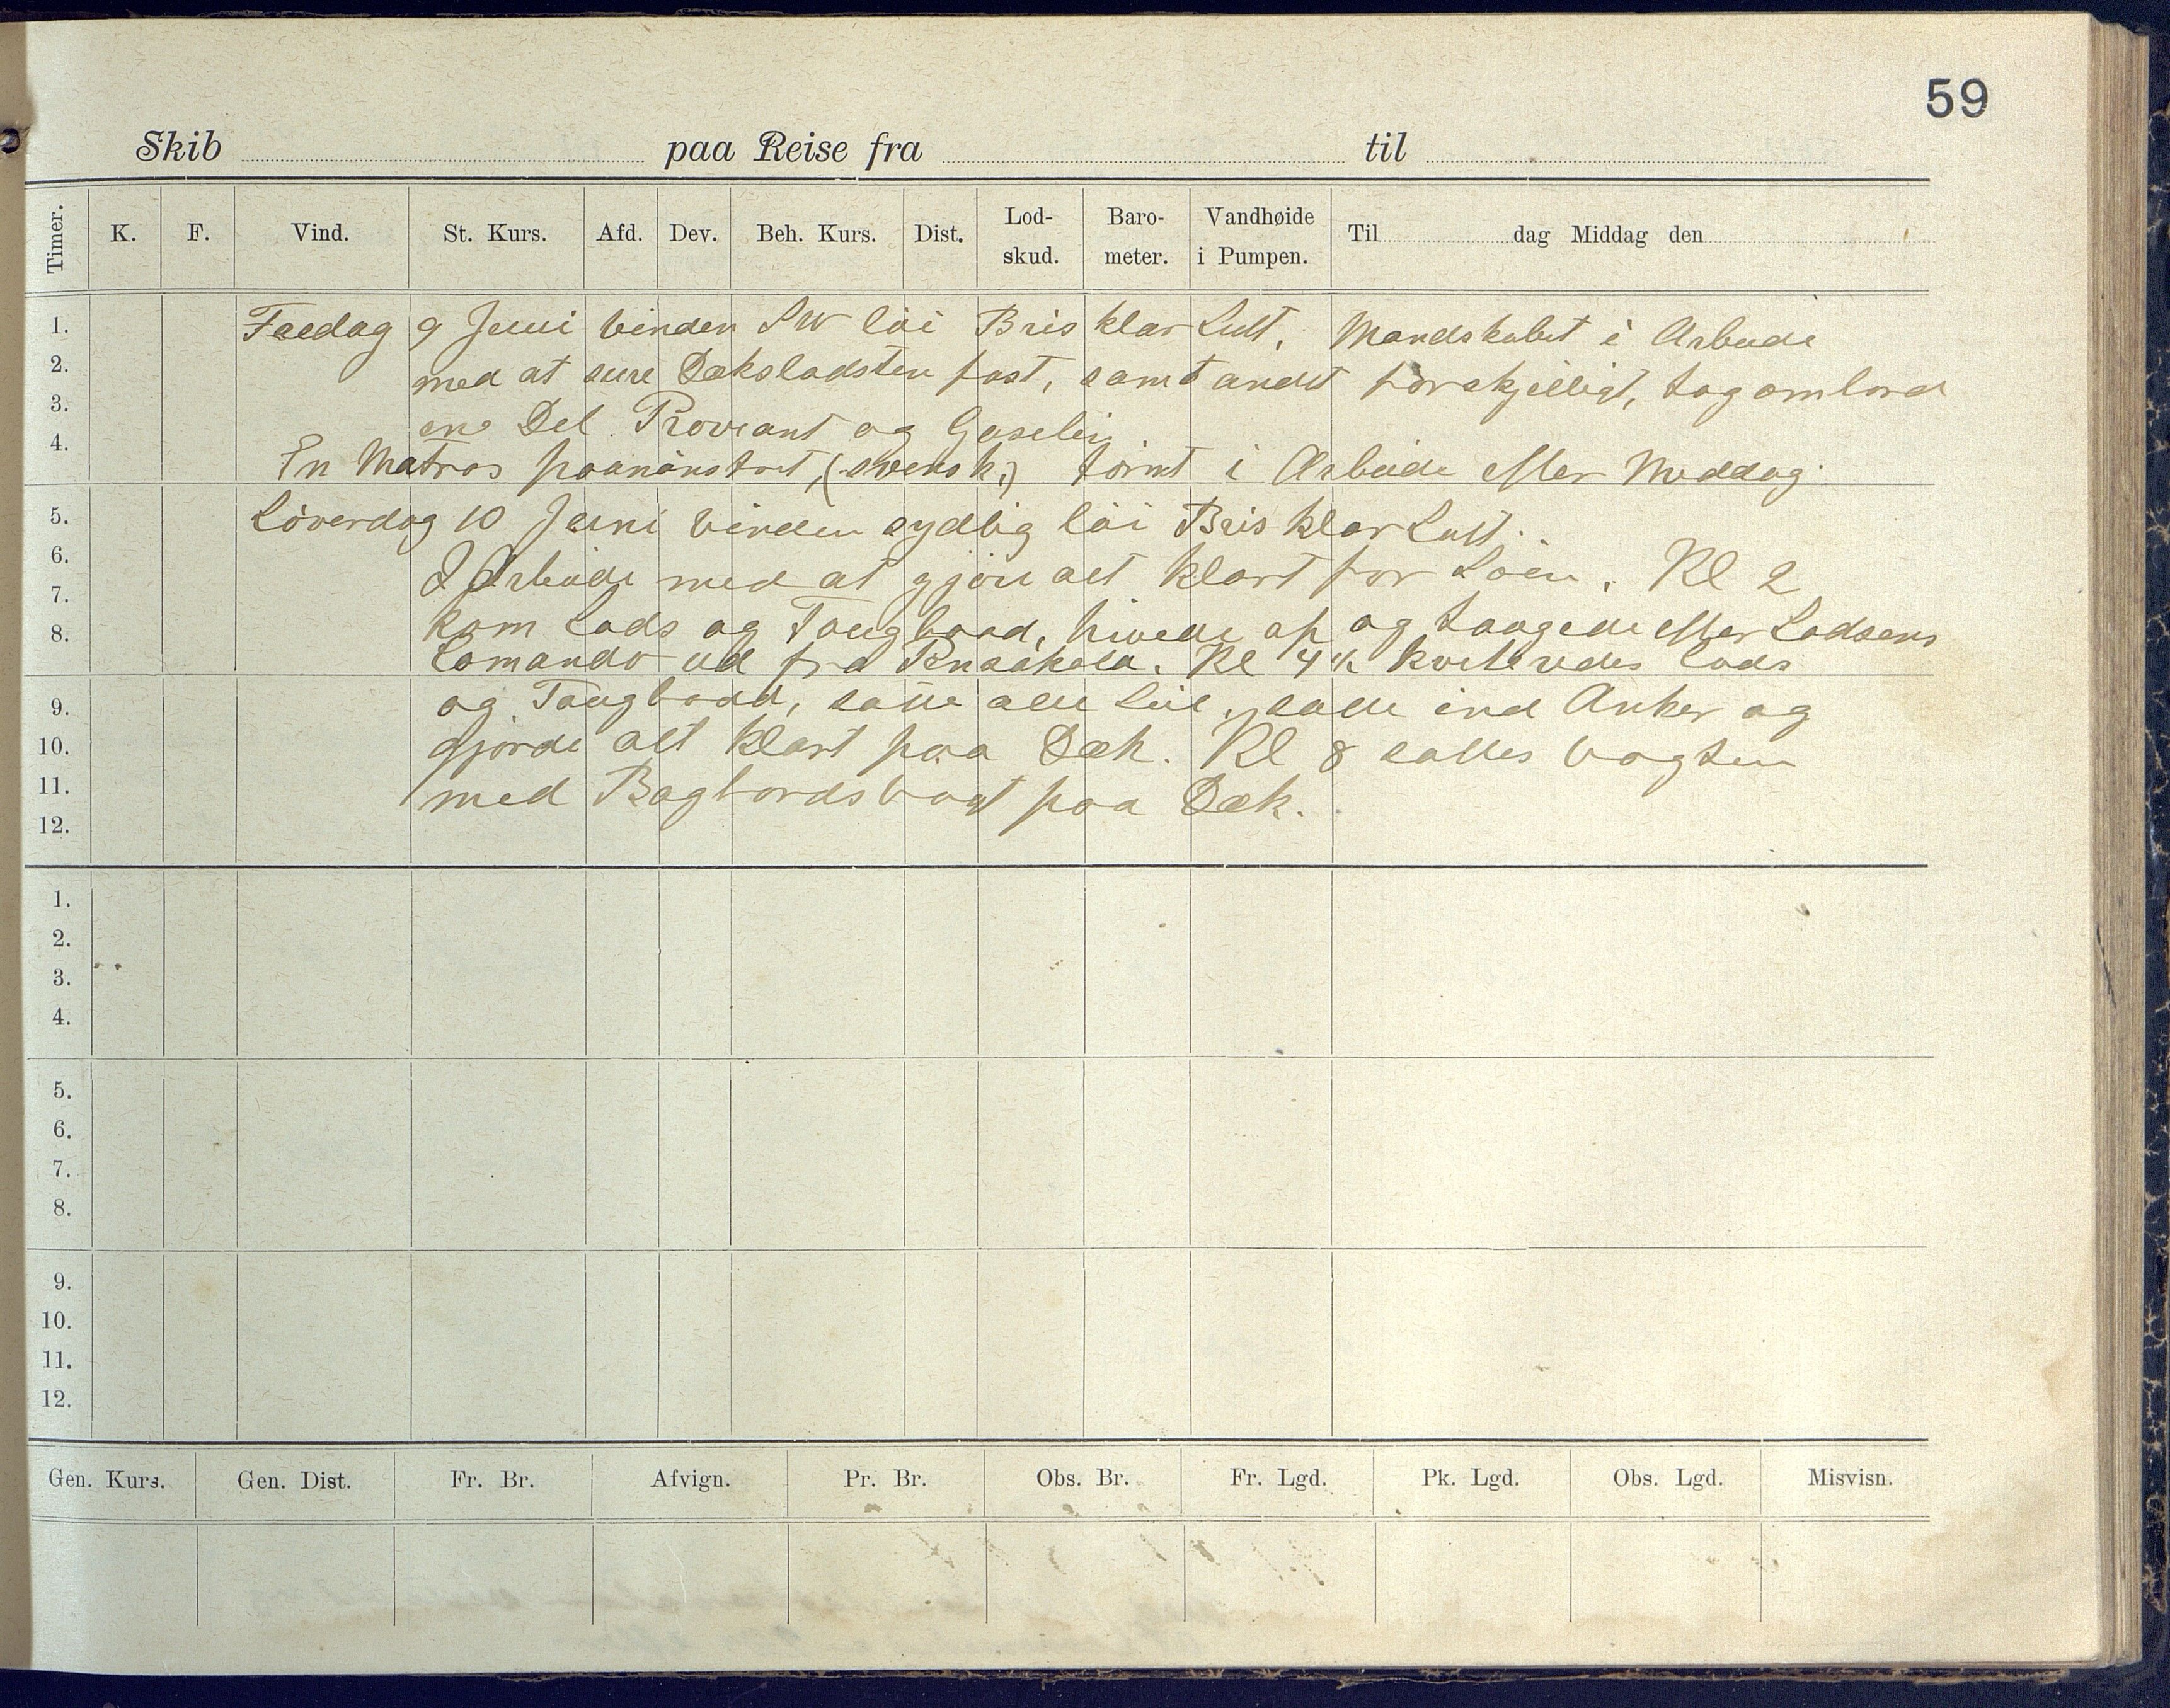 59
Skib paa Reise fra til
Timer. K. F. Vind. St. Kurs. Afd. Dev. Beh. Kurs. Dist. Lod-skud. Baro-meter. Vandhøide i Pumpen. Til dag Middag den
1. Fredag 9 Juni Vinden SW løi Bris klar Luft. Mandskabet i Arbeide
2. med at sure Dæksladsten fast, samt andet forskjelligt, tog ombord
3. en Del Proviant og Gaselin
4. En Matros paamønstret, (svensk,) tørnt i Arbeide efter Meddag.
5. Løverdag 10 Juni Vinden sydlig løi Bris klar Luft.
6. I Arbeide med at gjøre alt klart for Søen. Kl 2
7. kom Lods og Taugbaad, hivede op og taugede efter Lodsens
8. Comando ud fra Pensakola. Kl 4 ½ kvitteredes Lods
9. og Taugbaad, satte alle Seil, satte ind Anker og
10. gjorde alt klart paa Dæk. Kl 8 sattes Vagten
11. med Bagbords Vagt paa Dæk.
12.
1.
2.
3.
4.
5.
6.
7.
8.
9.
10.
11.
12.
Gen. Kurs. Gen. Dist. Fr. Br. Afvign. Pr. Br. Obs. Br. Fr. Lgd. Pk. Lgd. Obs. Lgd. Misvisn.